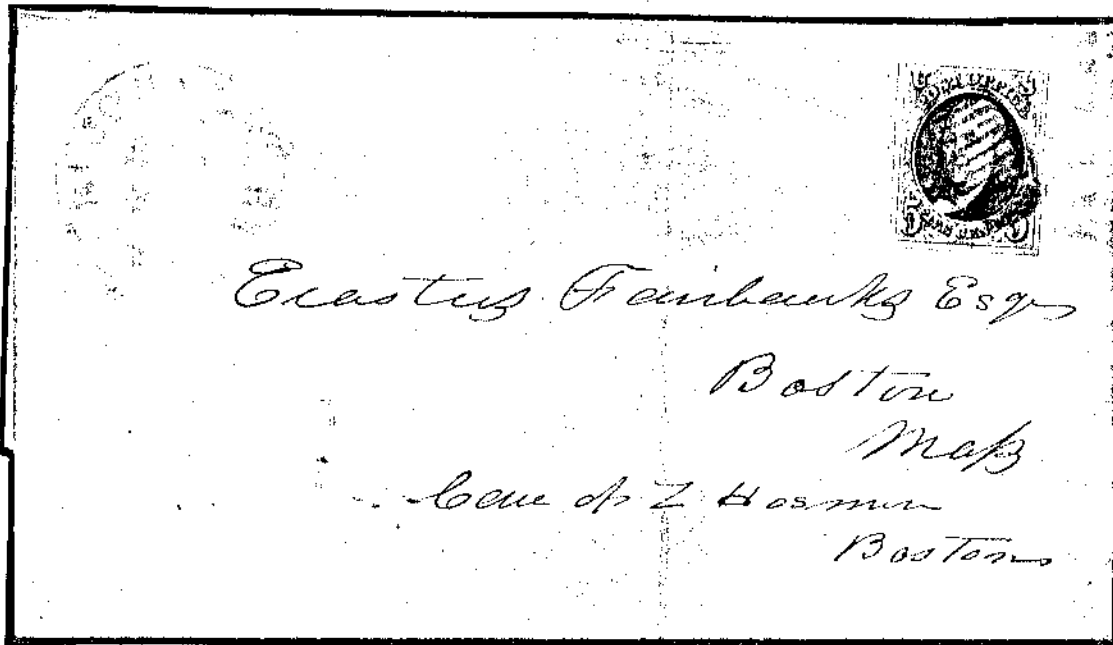 POST OFFICE
5 5
Erastus Fairbanks Esqr
Boston
Maſs
Care of Z Hosmer
Boston